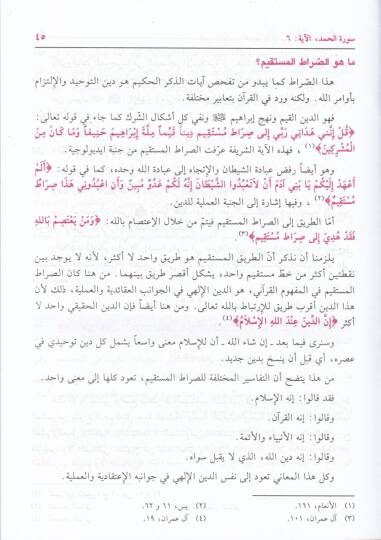 سورة الحمد، الآية: ٦
٤٥
ما هو الصّراط المستقيم؟
هذا الصّراط كما يبدو من تفحص آيات الذكر الحكيم هو دين التوحيد والإلتزام
بأوامر الله. ولكنه ورد في القرآن بتعابير مختلفة.
فهو الدين القيم ونهج إبراهيم ونفي كل أشكال الشّرك كما جاء في قوله تعالى:
﴿قُلْ إِنَّنِي هَدَانِي رَبِّي إِلى صِرَاطٍ مُسْتَقِيمٍ دِيناً قَيِّماً مِلَّةَ إِبْرَاهِيمَ حَنِيفاً وَمَا كَانَ مِنَ
الْمُشْرِكِينَ﴾(١)، فهذه الآية الشريفة عرّفت الصراط المستقيم من جنبة ايديولوجية.
وهو أيضاً رفض عبادة الشيطان والإتجاه إلى عبادة الله وحده، كما في قوله: ﴿أَلَمْ
أَعْهَدْ إِلَيْكُمْ يَا بَنِي آدَمَ أَنْ لاَتَعْبُدُوا الشَّيْطَانَ إِنَّهُ لَكُمْ عَدُوٌّ مُبِينٌ وَأَنِ اعْبُدُونِي هَذَا صِرَاطٌ
مُسْتَقِيمٌ﴾(٢)، وفيها إشارة إلى الجنبة العملية للدين.
أمّا الطريق إلى الصراط المستقيم فيتمّ من خلال الإعتصام بالله: ﴿وَمَنْ يَعْتَصِمْ بِاللهِ
فَقَدْ هُدِيَ إِلى صِرَاطٍ مُسْتَقِيمٍ﴾(٣).
يلزمنا أن نذكر أنّ الطريق المستقيم هو طريق واحد لا أكثر، لأنه لا يوجد بين
نقطتين أكثر من خطّ مستقيم واحد، يشكل أقصر طريق بينهما. من هنا كان الصراط
المستقيم في المفهوم القرآني، هو الدين الإلهي في الجوانب العقائدية والعملية، ذلك لأن
هذا الدين أقرب طريق للإرتباط بالله تعالى. ومن هنا أيضاً فإن الدين الحقيقي واحد لا
أكثر ﴿إِنَّ الدِّينَ عِنْدَ اللهِ الإِسْلاَمُ﴾(٤).
وسنرى فيما بعد ـ إن شاء الله ـ أن للإسلام معنى واسعاً يشمل كل دين توحيدي في
عصره، أي قبل أن ينسخ بدين جديد.
من هذا يتضح أن التفاسير المختلفة للصراط المستقيم، تعود كلها إلى معنى واحد.
فقد قالوا: إنه الإسلام.
وقالوا: إنه القرآن.
وقالوا: إنه الأنبياء والأئمة.
وقالوا: إنه دين الله، الذي لا يقبل سواه.
وكل هذا المعاني تعود إلى نفس الدين الإلهي في جوانبه الإعتقادية والعملية.
(١) الأنعام، ١٦١.
(٢) يس، ٦١ و ٦٢.
(٣) آل عمران، ١٠١.
(٤) آل عمران، ١٩.